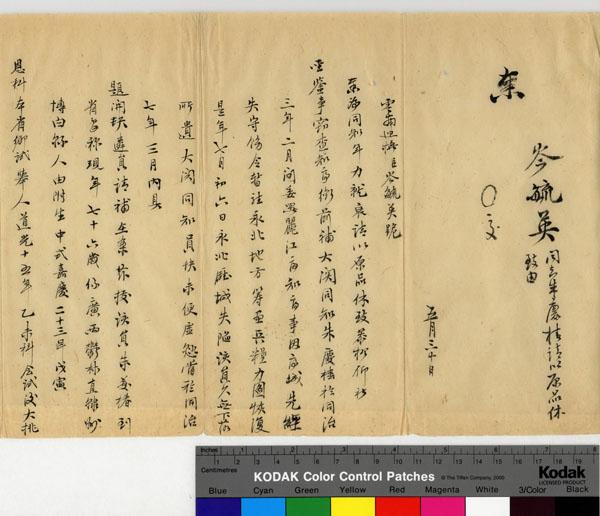 奏
岑毓英 同知朱慶椿請以原品休
致由
○ 交
五月三十日
雲南巡撫臣岑毓英跪
奏為同知年力就衰請以原品休致恭摺仰祈
聖鑒事竊查知府銜前補大關同知朱慶椿於同治
三年二月間委署麗江府知府事因府城先經
失守飭令暫駐永北地方籌畫兵糧力圖恢復
是年七月初六日永北廳城失陷該員久無下落
所遺大關同知員缺未便虛懸當於同治
七年三月內具
題開缺遴員請補在案茲據該員朱慶椿到
省呈稱現年七十六歲係廣西鬱林直隸州
博白縣人由附生中式嘉慶二十三年戊寅
恩科本省鄉試舉人道光十五年乙未科會試後大挑
Inches
Centimetres
KODAK Color Control Patches
© The Tiffen Company, 2000
Kodak
LICENSED PRODUCT
Blue Cyan Green Yellow Red Magenta White 3/Color Black